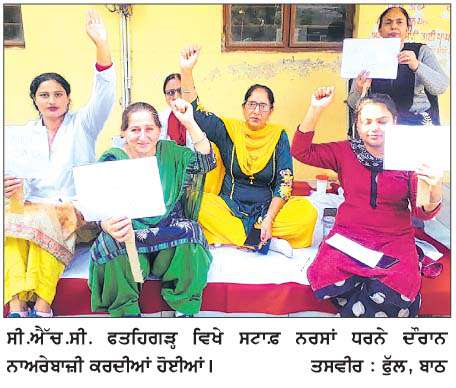 ਸੀ.ਐੱਚ.ਸੀ. ਫਤਹਿਗੜ੍ਹ ਵਿਖੇ ਸਟਾਫ਼ ਨਰਸਾਂ ਧਰਨੇ ਦੌਰਾਨ
ਨਾਅਰੇਬਾਜ਼ੀ ਕਰਦੀਆਂ ਹੋਈਆਂ। ਤਸਵੀਰ : ਫੁੱਲ, ਬਾਠ